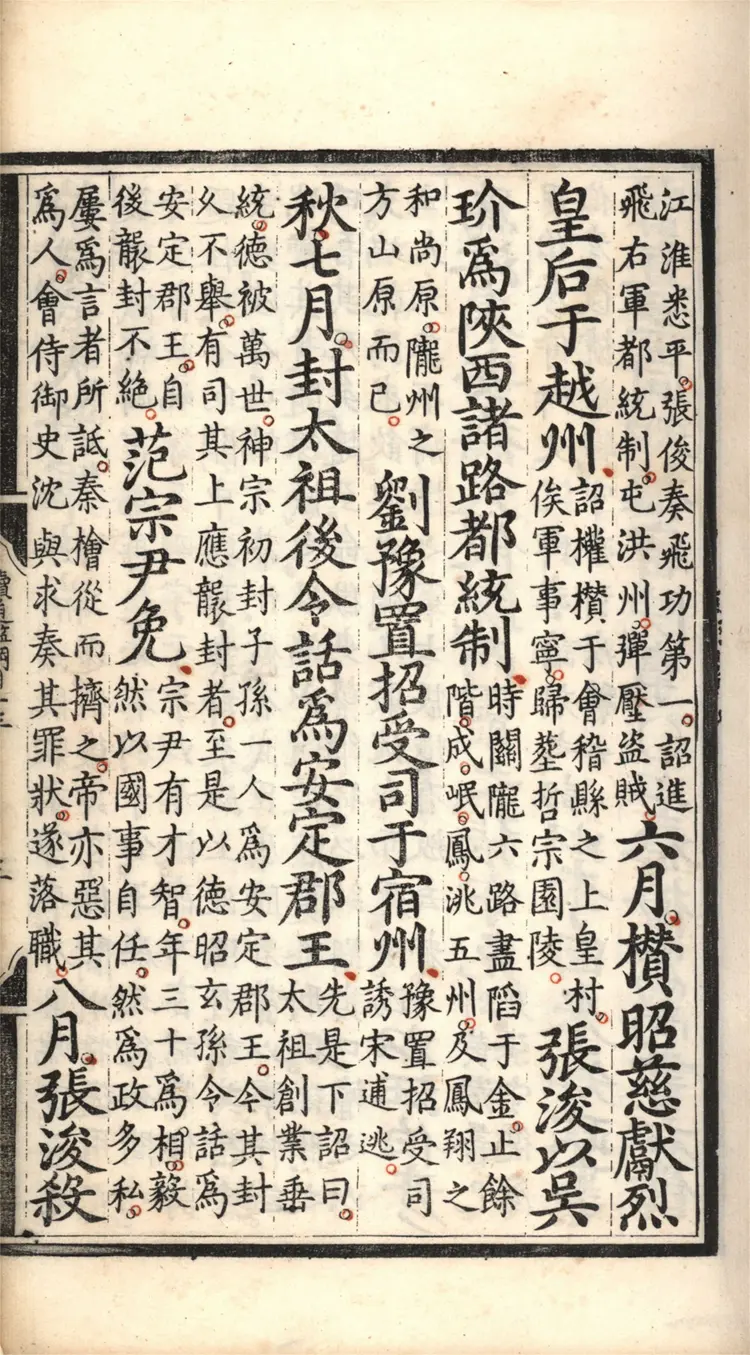 江淮悉平張俊奏飛功第一詔進
飛右軍都統制屯洪州彈壓盜賊
六月攢昭慈獻烈
皇后于越州
詔權攢于會稽縣之上皇村
俟軍事寧歸塟哲宗園陵
張浚以吳
玠爲陝西諸路都統制
時關隴六路盡陷于金止餘
階成岷鳳洮五州及鳳翔之
和尚原隴州之
方山原而已
劉豫置招受司于宿州
豫置招受司
誘宋逋逃
秋七月封太祖後令話爲安定郡王
先是下詔曰
太祖創業垂
統德被萬世神宗初封子孫一人爲安定郡王今其封
久不舉有司其上應襲封者至是以德昭玄孫令話爲
安定郡王自
後襲封不絶
范宗尹免
宗尹有才智年三十爲相毅
然以國事自任然爲政多私
屢爲言者所詆秦檜從而擠之帝亦惡其
爲人會侍御史沈與求奏其罪狀遂落職
八月張浚殺